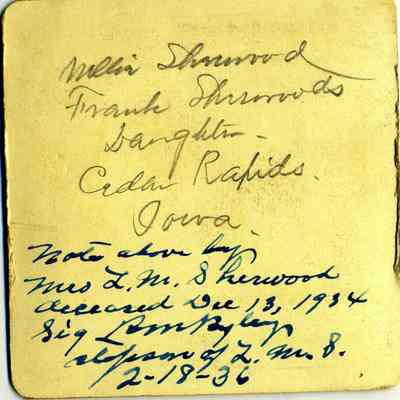 Nellie Sherwood
Frank Sherwoods
Daughter -
Cedar Rapids.
Iowa.
Note above by
Mrs L. M. Sherwood
deceased Dec 13, 1934
Sig
stepson of L. M. S.
2-18-36